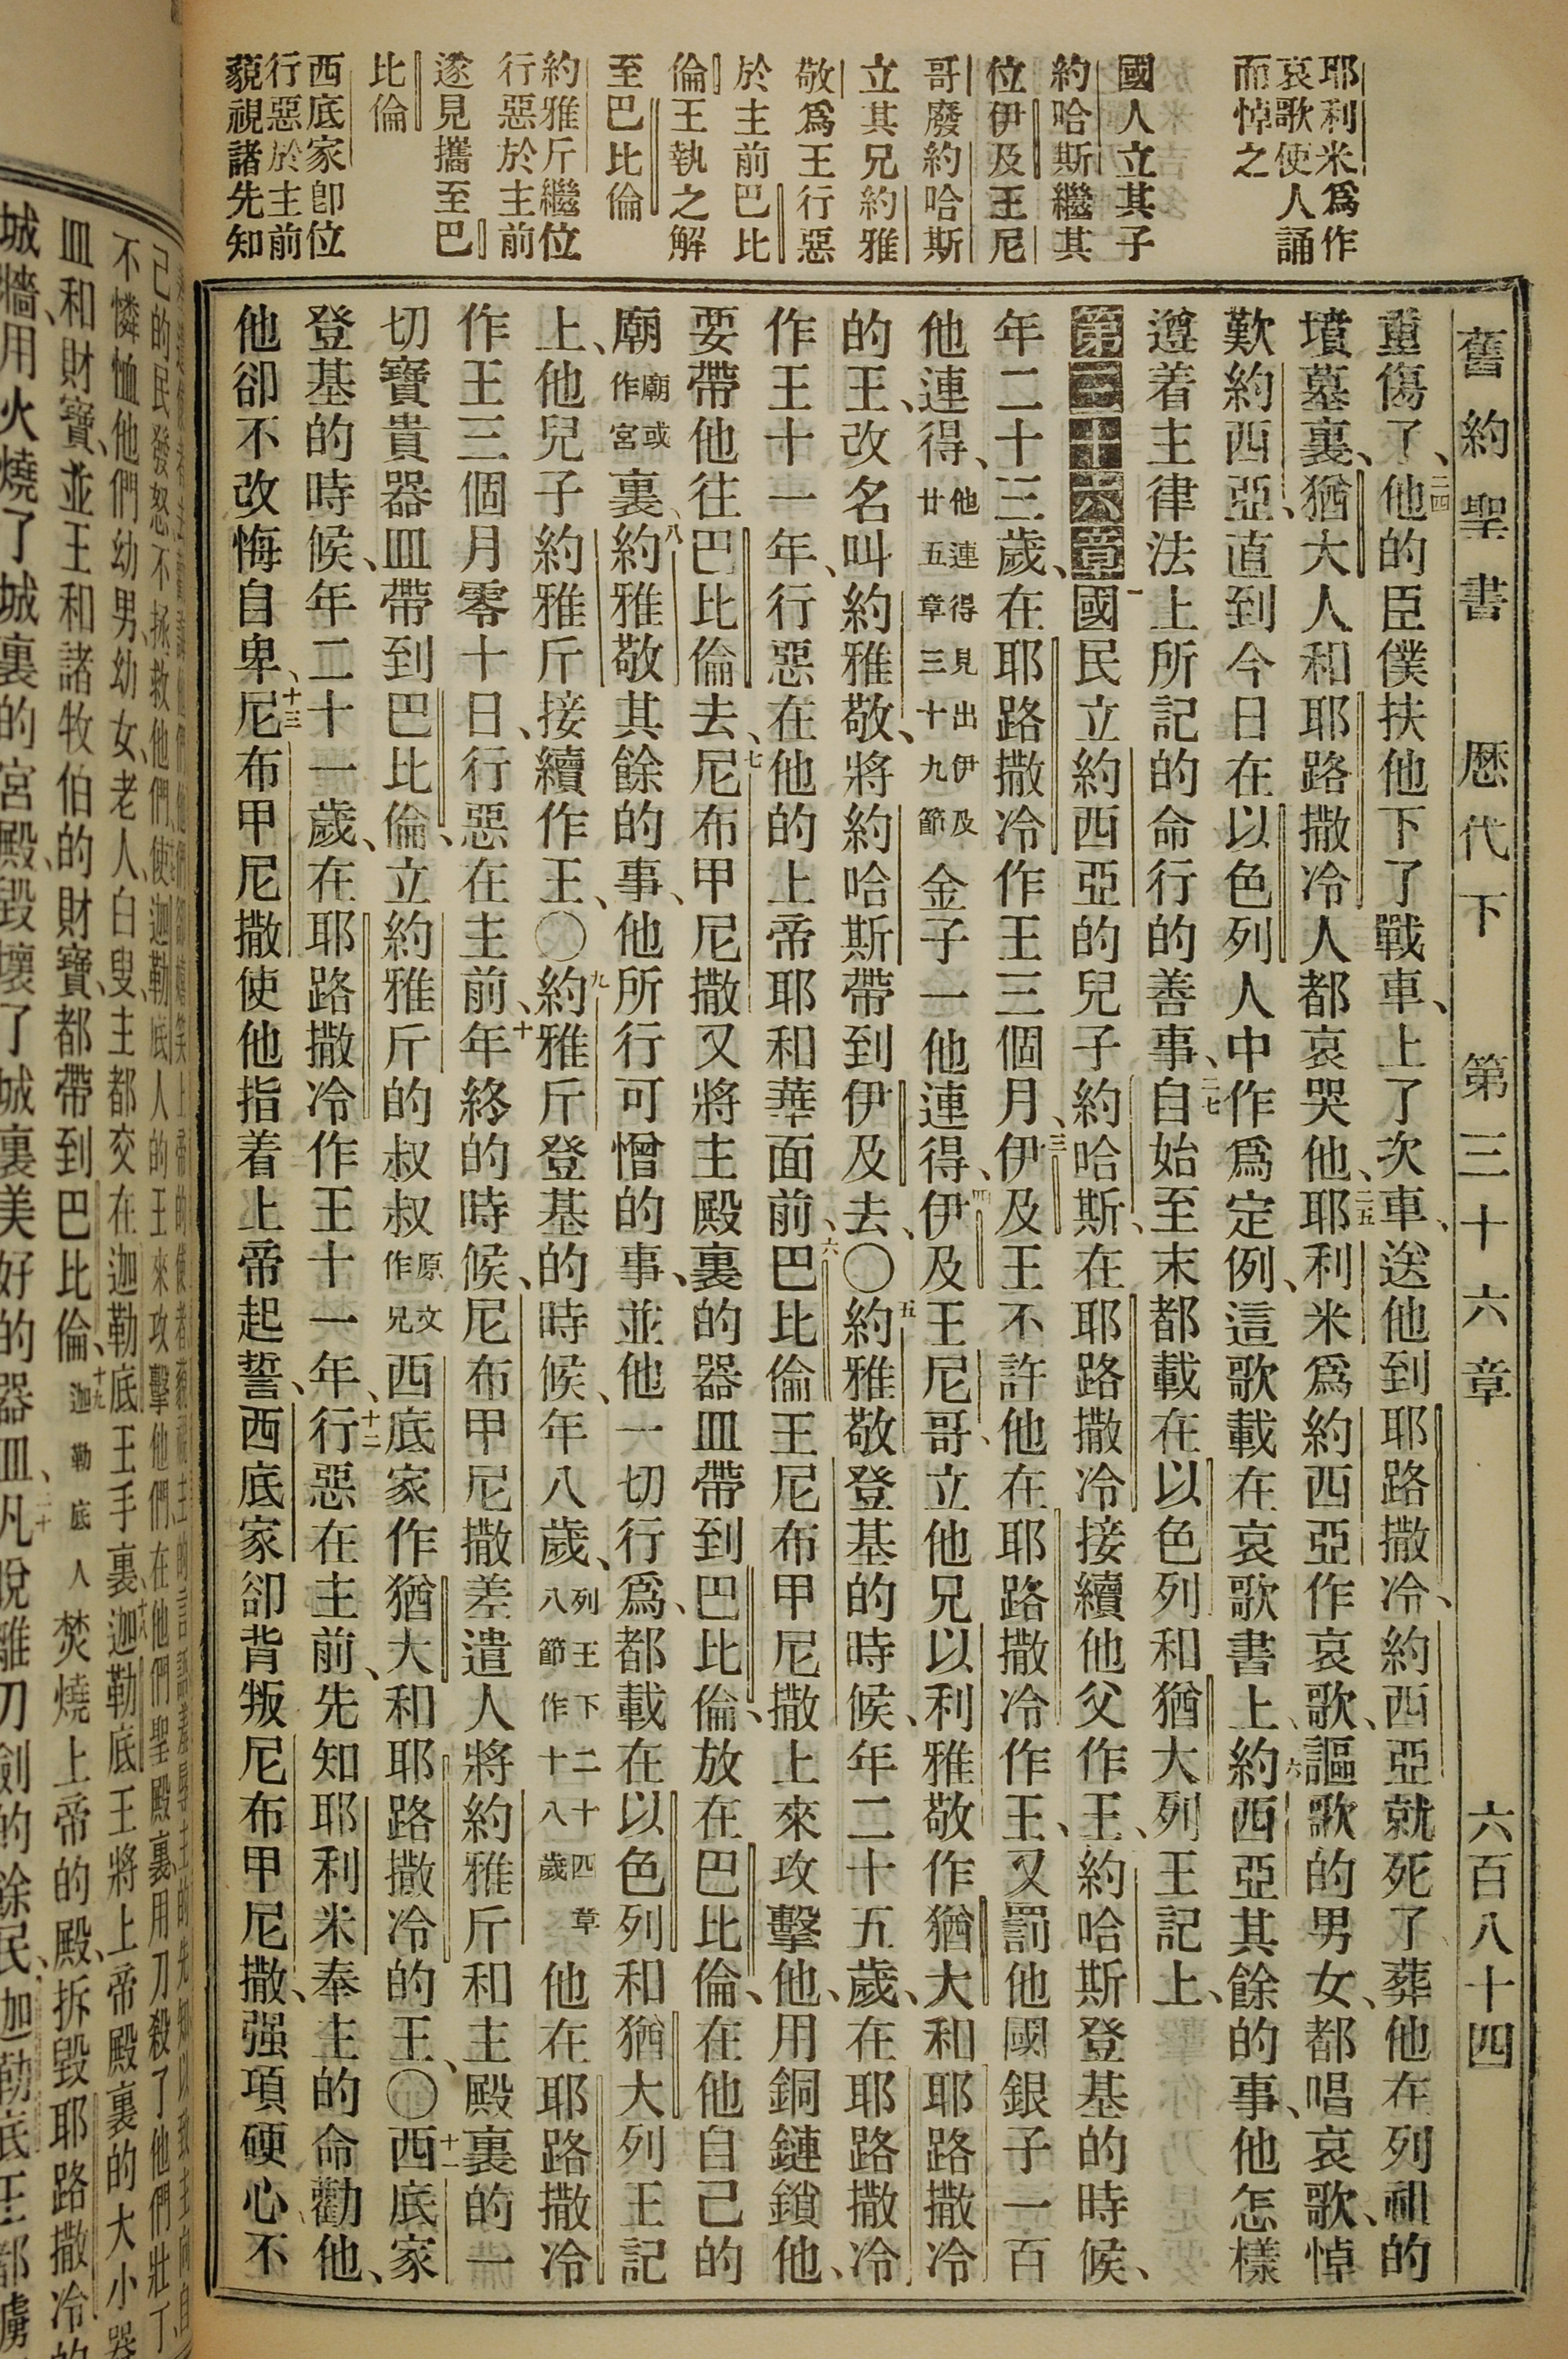 耶利米爲作
哀歌使人誦
而悼之
國人立其子
約哈斯繼其
位伊及王尼
哥廢約哈斯
立其兄約雅
敬爲王行惡
於主前巴比
倫王執之解
至巴比倫
約雅斤繼位
行惡於主前
遂見攜至巴
比倫
西底家卽位
行惡於主前
藐視諸先知
舊約聖書 歷代下 第三十六章 六百八十四
重傷了、二四他的臣僕扶他下了戰車、上了次車、送他到耶路撒冷、約西亞就死了葬他在列祖的
墳墓裏、猶大人和耶路撒冷人都哀哭他、二五耶利米爲約西亞作哀歌、謳歌的男女、都唱哀歌、悼
歎約西亞、直到今日在以色列人中作爲定例、這歌載在哀歌書上、二六約西亞其餘的事、他怎樣
遵着主律法上所記的命行的善事、二七自始至末都載在以色列和猶大列王記上、
第三十六章一國民立約西亞的兒子約哈斯、在耶路撒冷接續他父作王、二約哈斯登基的時候、
年二十三歲、在耶路撒冷作王三個月、三伊及王不許他在耶路撒冷作王、又罰他國銀子一百
他連得、他連得見出伊及廿五章三十九節金子一他連得、四伊及王尼哥、立他兄以利雅敬作猶大和耶路撒冷
的王、改名叫約雅敬、將約哈斯帶到伊及去、〇五約雅敬登基的時候、年二十五歲、在耶路撒冷
作王十一年、行惡在他的上帝耶和華面前、六巴比倫王尼布甲尼撒上來攻擊他、用銅鏈鎖他、
要帶他往巴比倫去、七尼布甲尼撒又將主殿裏的器皿帶到巴比倫、放在巴比倫、在他自己的
廟廟或作宮裏、八約雅敬其餘的事、他所行可憎的事、並他一切行爲、都載在以色列和猶大列王記
上、他兒子約雅斤接續作王、〇九約雅斤登基的時候、年八歲、列王下二十四章八節作十八歲他在耶路撒冷
作王三個月零十日、行惡在主前、十年終的時候、尼布甲尼撒差遣人將約雅斤和主殿裏的一
切寶貴器皿帶到巴比倫、立約雅斤的叔叔原文作兄西底家作猶大和耶路撒冷的王、〇十一西底家
登基的時候、年二十一歲、在耶路撒冷作王十一年、十二行惡在主前、先知耶利米奉主的命勸他、
他卻不改悔自卑、十三尼布甲尼撒使他指着上帝起誓、西底家卻背叛尼布甲尼撒、强項硬心、不
己的民發怒不拯救他們、使迦勒底人的王來攻擊他們在他們聖殿裏、用刀殺了他們壯丁、
不憐恤他們幼男、幼女、老人、白叟、主都交在迦勒底王手裏、十八迦勒底王將上帝殿裏的大小器
皿和財寶、並王和諸牧伯的財寶、都帶到巴比倫、十九迦勒底人焚燒上帝的殿、拆毀耶路撒冷的
城牆用火燒了城裏的宮殿、毀壞了城裏美好的器皿、二十凡脫離刀劍的餘民、迦勒底王都虜